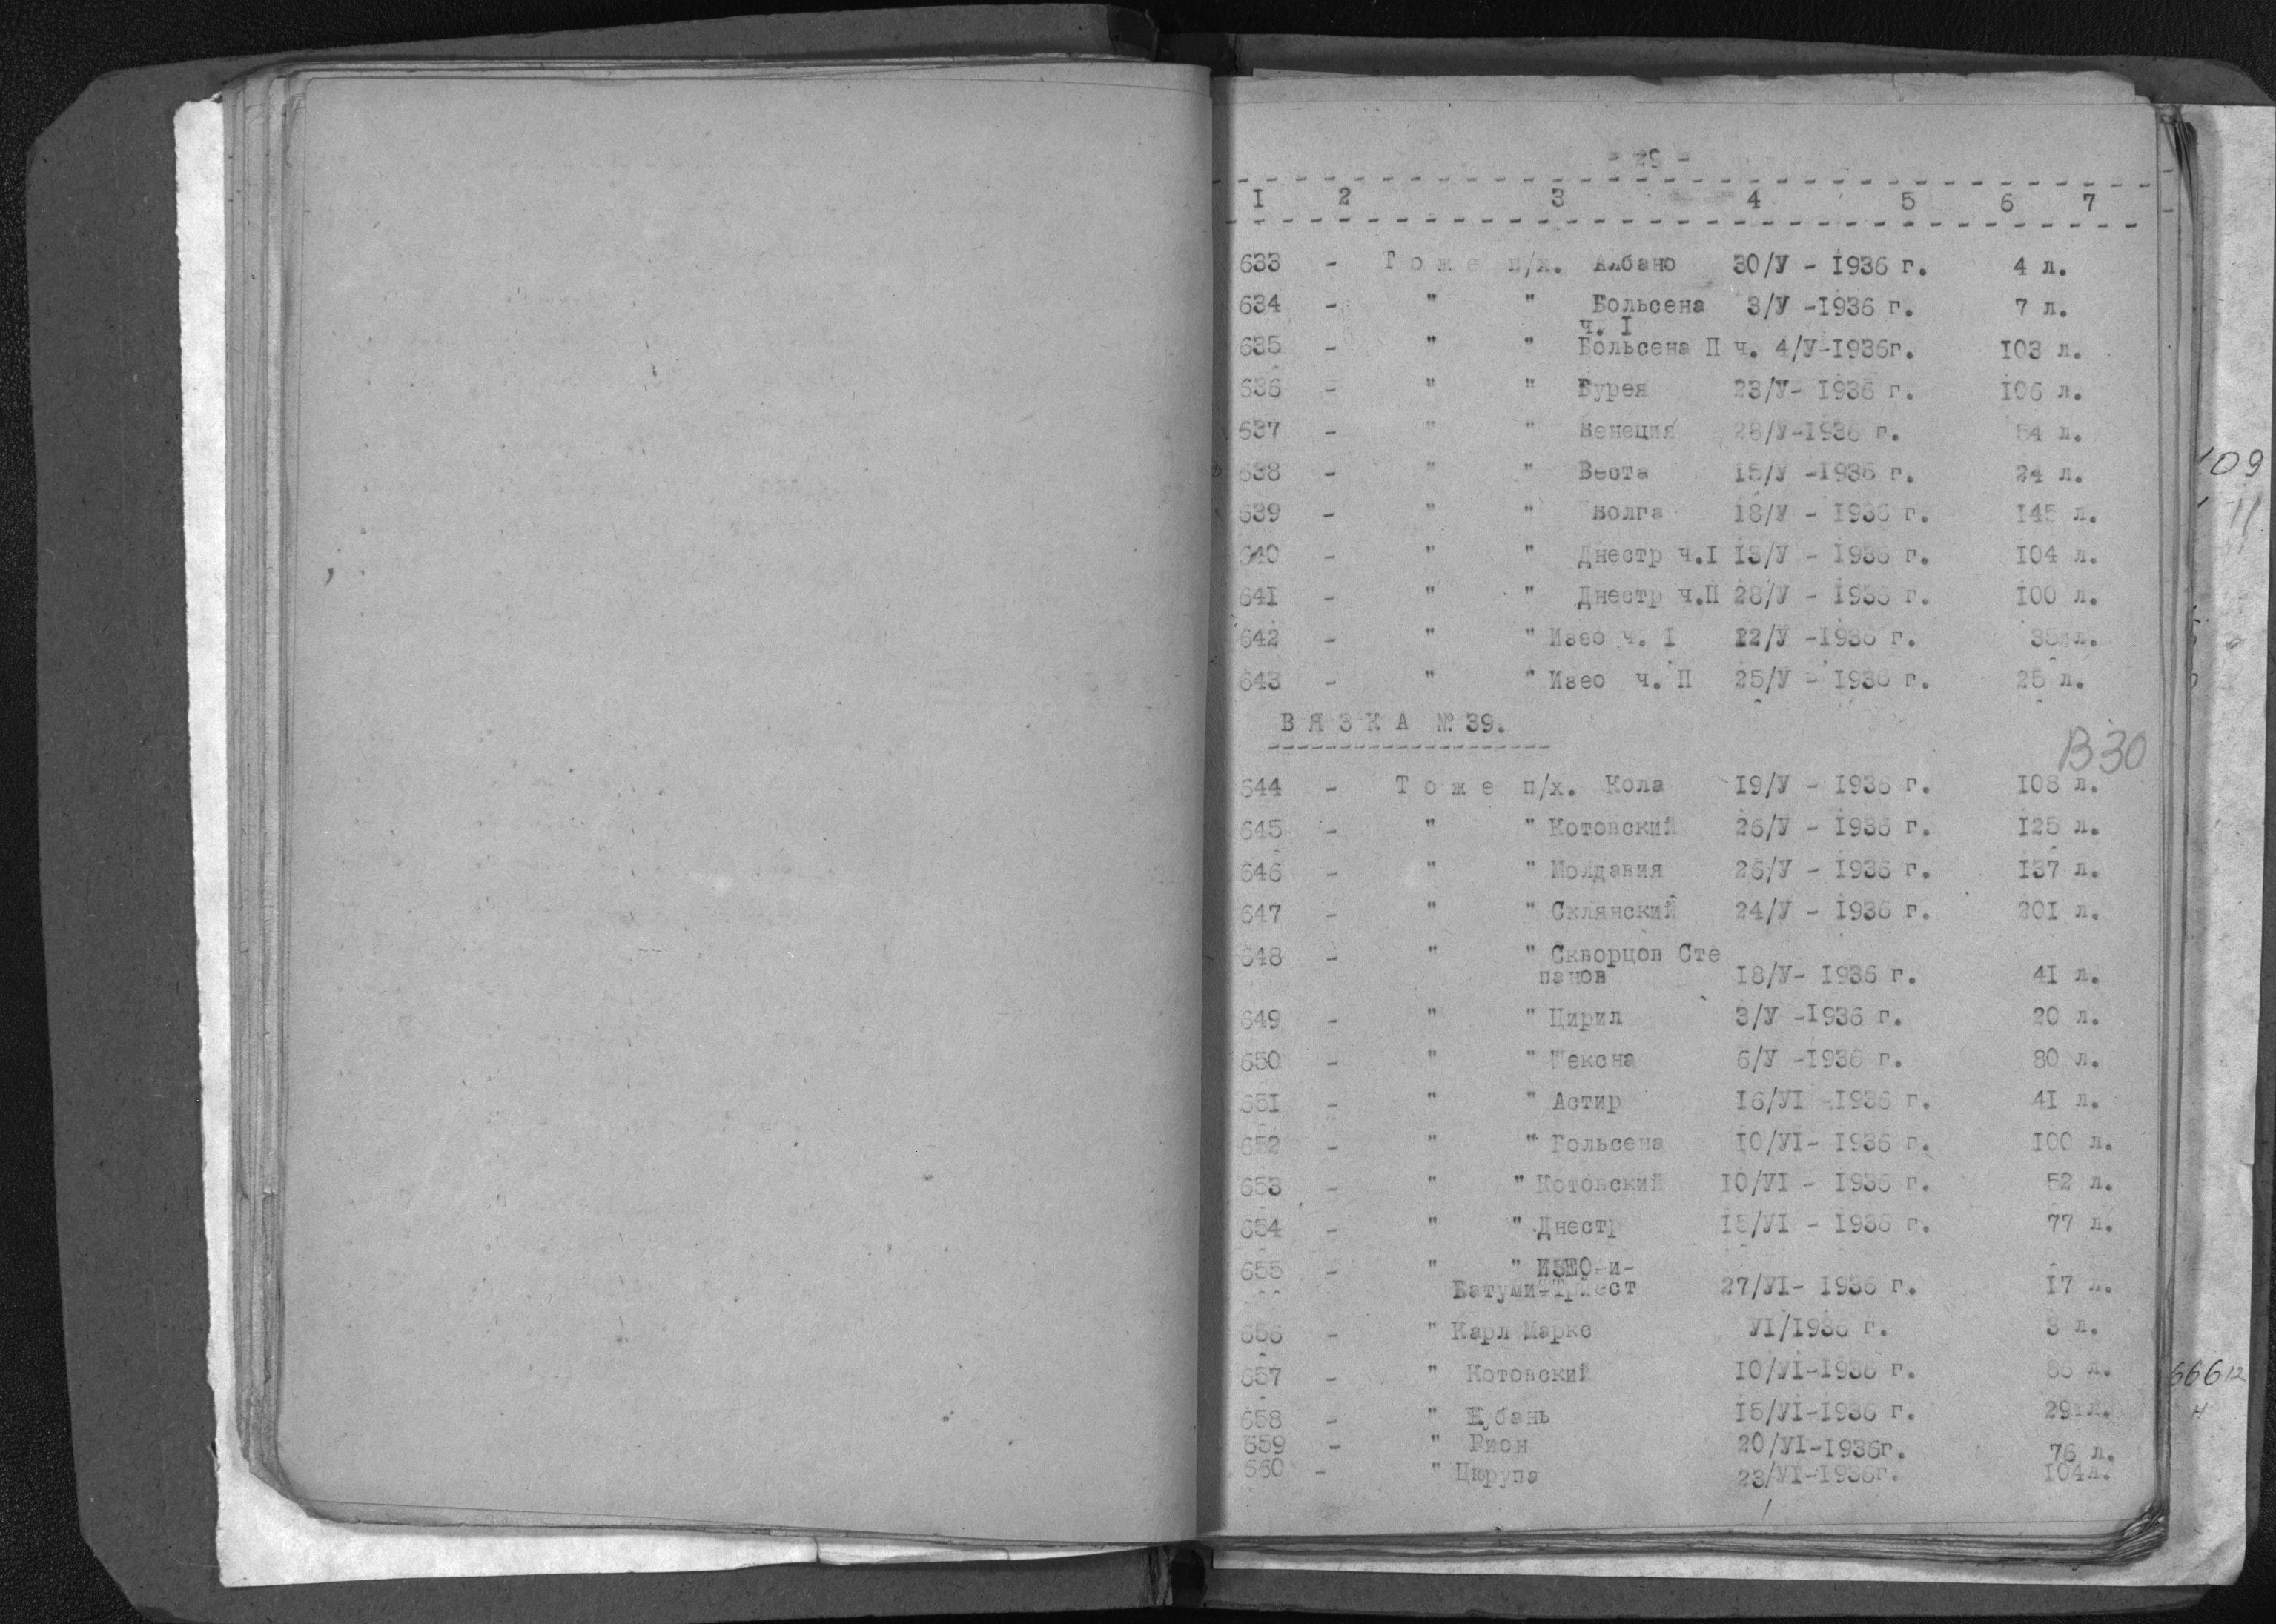 - 29 -
I 2 3 4 5 6 7
633 - Тоже п/х. Албано 30/У - 1936 г. 4 л.
634 - " " Больсена 3/У -1936 г. 7 л.
ч. I
635 - " " Больсена П ч. 4/У-1936г. 103 л.
636 - " " Бурея 23/У- 1936 г. 106 л.
637 - " " Венеция 28/У-1936 г. 54 л.
638 - " " Веста 15/У -1936 г. 24 л.
639 - " " Волга 18/У - 1936 г. 145 л.
640 - " " Днестр ч.I 13/У - 1936 г. 104 л.
641 - " " Днестр ч.П 28/У - 1936 г. 100 л.
642 - " " Изео ч. I /У -1936 г. л.
643 - " " Изео ч. П 25/У - 1936 г. 25 л.
ВЯЗКА № 39.
В30
644 - Тоже п/х. Кола 19/У - 1936 г. 108 л.
645 - " " Котовский 26/У - 1936 г. 125 л.
646 - " " Молдавия 26/У - 1936 г. 137 л.
647 - " " Склянский 24/У - 1936 г. 201 л.
648 - " " Скворцов Сте
панов 18/У- 1936 г. 41 л.
649 - " " Цирил 3/У -1936 г. 20 л.
650 - " " Шексна 6/У -1936 г. 80 л.
651 - " " Астир 16/УI -1936 г. 41 л.
652 - " " Больсена 10/УI- 1936 г. 100 л.
653 - " " Котовский 10/УI - 1936 г. 52 л.
654 - " " Днестр 15/УI - 1936 г. 77 л.
655 - " " ИЗЕО-и-
Батуми-Триест 27/УI- 1936 г. 17 л.
656 - " Карл Маркс УI/1936 г. 3 л.
657 - " Котовский 10/УI-1936 г. л.
658 - " Кубань 15/УI-1936 г. 29 л.
659 - " Рион 20/УI-1936г. 76 л.
660 - " Цюрупа 23/УI-1936г. 104л.
109
11